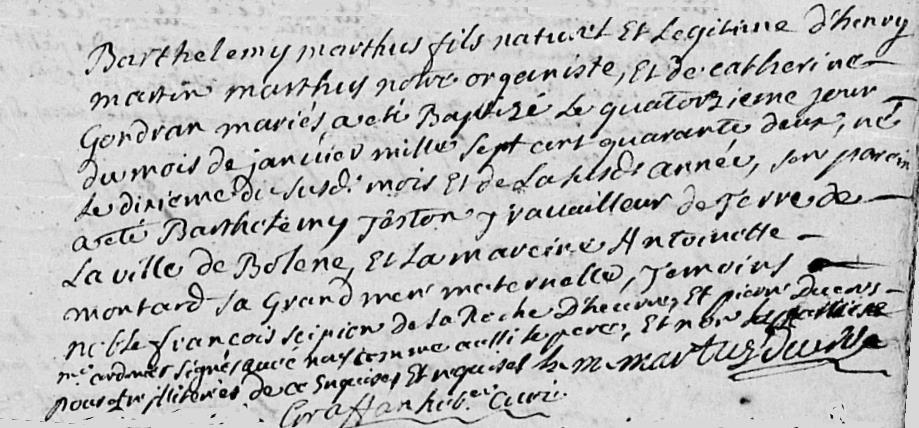 Barthelemy marthus fils naturel Et Legitime d'henry
martin marthus notre organiste, Et de catherine
Gondran mariés a eté Baptizé Le quatorzieme jour
du mois de janvier mille sept cent quarante deux, né
Le dixieme du susd. mois Et de La susd. année, son parain
a eté Barthelemy Teston Travailleur de Terre de
La ville de Bolene, Et La mareine Antoinette
montard sa Grand mere maternelle, Temoins
noble francois scipion de La Roche D'heurre, Et pierre
signés avec nous comme aussi le pere, Et non
pour être illiterés de ce Enquises Et requises h m martus
curé